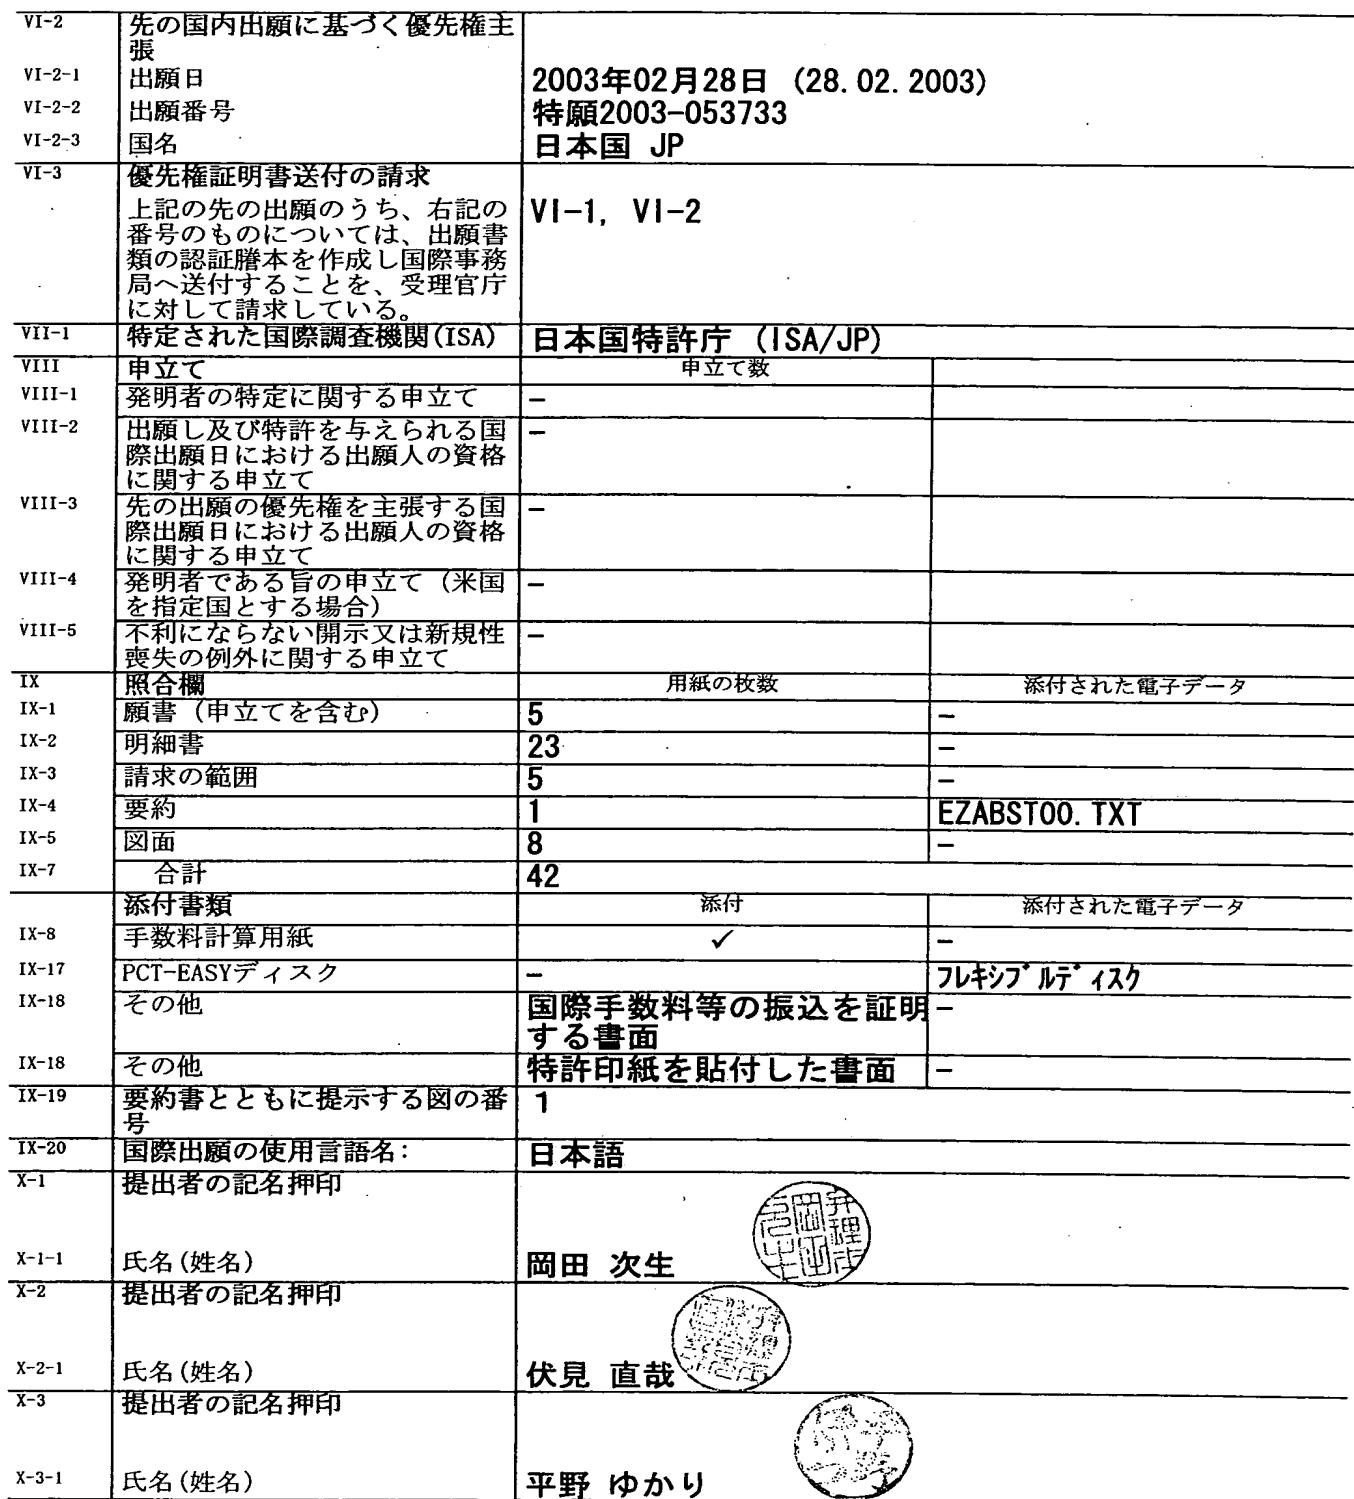 VI-2 先の国内出願に基づく優先権主
張
VI-2-1 出願日 2003年02月28日 (28.02.2003)
VI-2-2 出願番号 特願2003-053733
VI-2-3 国名 日本国 JP
VI-3 優先権証明書送付の請求
上記の先の出願のうち、右記の VI-1, VI-2
番号のものについては、出願書
類の認証謄本を作成し国際事務
局へ送付することを、受理官庁
に対して請求している。
VII-1 特定された国際調査機関(ISA) 日本国特許庁 (ISA/JP)
VIII 申立て 申立て数
VIII-1 発明者の特定に関する申立て –
VIII-2 出願し及び特許を与えられる国 –
際出願日における出願人の資格
に関する申立て
VIII-3 先の出願の優先権を主張する国 –
際出願日における出願人の資格
に関する申立て
VIII-4 発明者である旨の申立て（米国 –
を指定国とする場合）
VIII-5 不利にならない開示又は新規性 –
喪失の例外に関する申立て
IX 照合欄 用紙の枚数 添付された電子データ
IX-1 願書（申立てを含む） 5 –
IX-2 明細書 23 –
IX-3 請求の範囲 5 –
IX-4 要約 1 EZABST00.TXT
IX-5 図面 8 –
IX-7 合計 42
添付書類 添付 添付された電子データ
IX-8 手数料計算用紙 ✓ –
IX-17 PCT-EASYディスク – ﾌﾚｷｼﾌﾞﾙﾃﾞｨｽｸ
IX-18 その他 国際手数料等の振込を証明 –
する書面
IX-18 その他 特許印紙を貼付した書面 –
IX-19 要約書とともに提示する図の番 1
号
IX-20 国際出願の使用言語名: 日本語
X-1 提出者の記名押印
X-1-1 氏名(姓名) 岡田 次生
X-2 提出者の記名押印
X-2-1 氏名(姓名) 伏見 直哉
X-3 提出者の記名押印
X-3-1 氏名(姓名) 平野 ゆかり